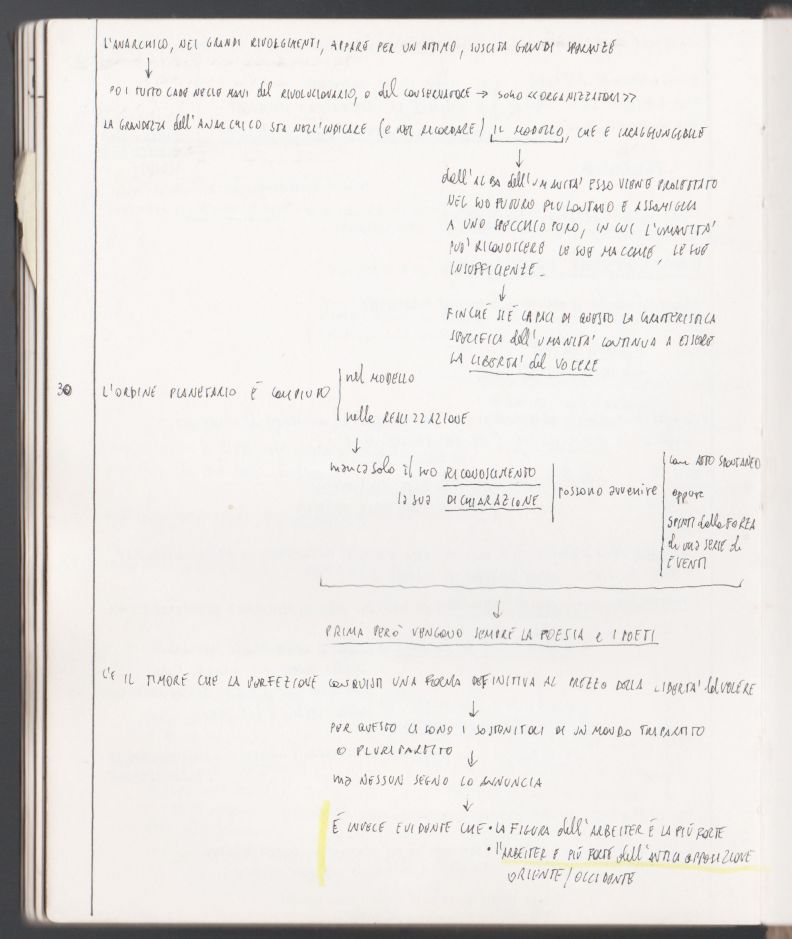 L'ANARCHICO, NEI GRANDI RIVOLGIMENTI, APPARE PER UN ATTIMO, SUSCITA GRANDI SPERANZE
↓
POI TUTTO CADE NELLE MANI del RIVOLUZIONARIO, O del CONSERVATORE → SONO <<ORGANIZZATORI>>
LA GRANDEZZA dell'ANARCHICO STA NELL'INDICARE (E NEL RICORDARE) IL MODELLO, CHE È IRRAGGIUNGIBILE
↓
dall'ALBA dell'UMANITA' ESSO VIENE PROIETTATO
NEL SUO FUTURO PIÙ LONTANO E ASSOMIGLIA
A UNO SPECCHIO PURO, IN CUI L'UMANITA'
PUO' RICONOSCERE LE SUE MACCHIE, LE SUE
INSUFFICIENZE.
↓
FINCHÉ SI È CAPACI DI QUESTO LA CARATTERISTICA
SPECIFICA dell'UMANITA' CONTINUA A ESSERE
LA LIBERTA' del VOLERE
30 L'ORDINE PLANETARIO È COMPIUTO
nel MODELLO
nella REALIZZAZIONE
↓
manca solo il suo RICONOSCIMENTO
la sua DICHIARAZIONE
possono avvenire
come ATTO SPONTANEO
oppure
SPINTI dalla FORZA
di una SERIE di
EVENTI
↓
PRIMA PERÒ VENGONO SEMPRE LA POESIA e I POETI
C'È IL TIMORE CHE LA PERFEZIONE CONQUISTI UNA FORMA DEFINITIVA AL PREZZO DELLA LIBERTA' del VOLERE
↓
PER QUESTO CI SONO I SOSTENITORI DI UN MONDO TRIPARTITO
O PLURIPARTITO ↓
ma NESSUN SEGNO LO ANNUNCIA
↓
È INVECE EVIDENTE CHE • LA FIGURA dell'ARBEITER È LA PIÙ FORTE
• l'ARBEITER È PIÙ FORTE dell'ANTICA OPPOSIZIONE
ORIENTE/OCCIDENTE